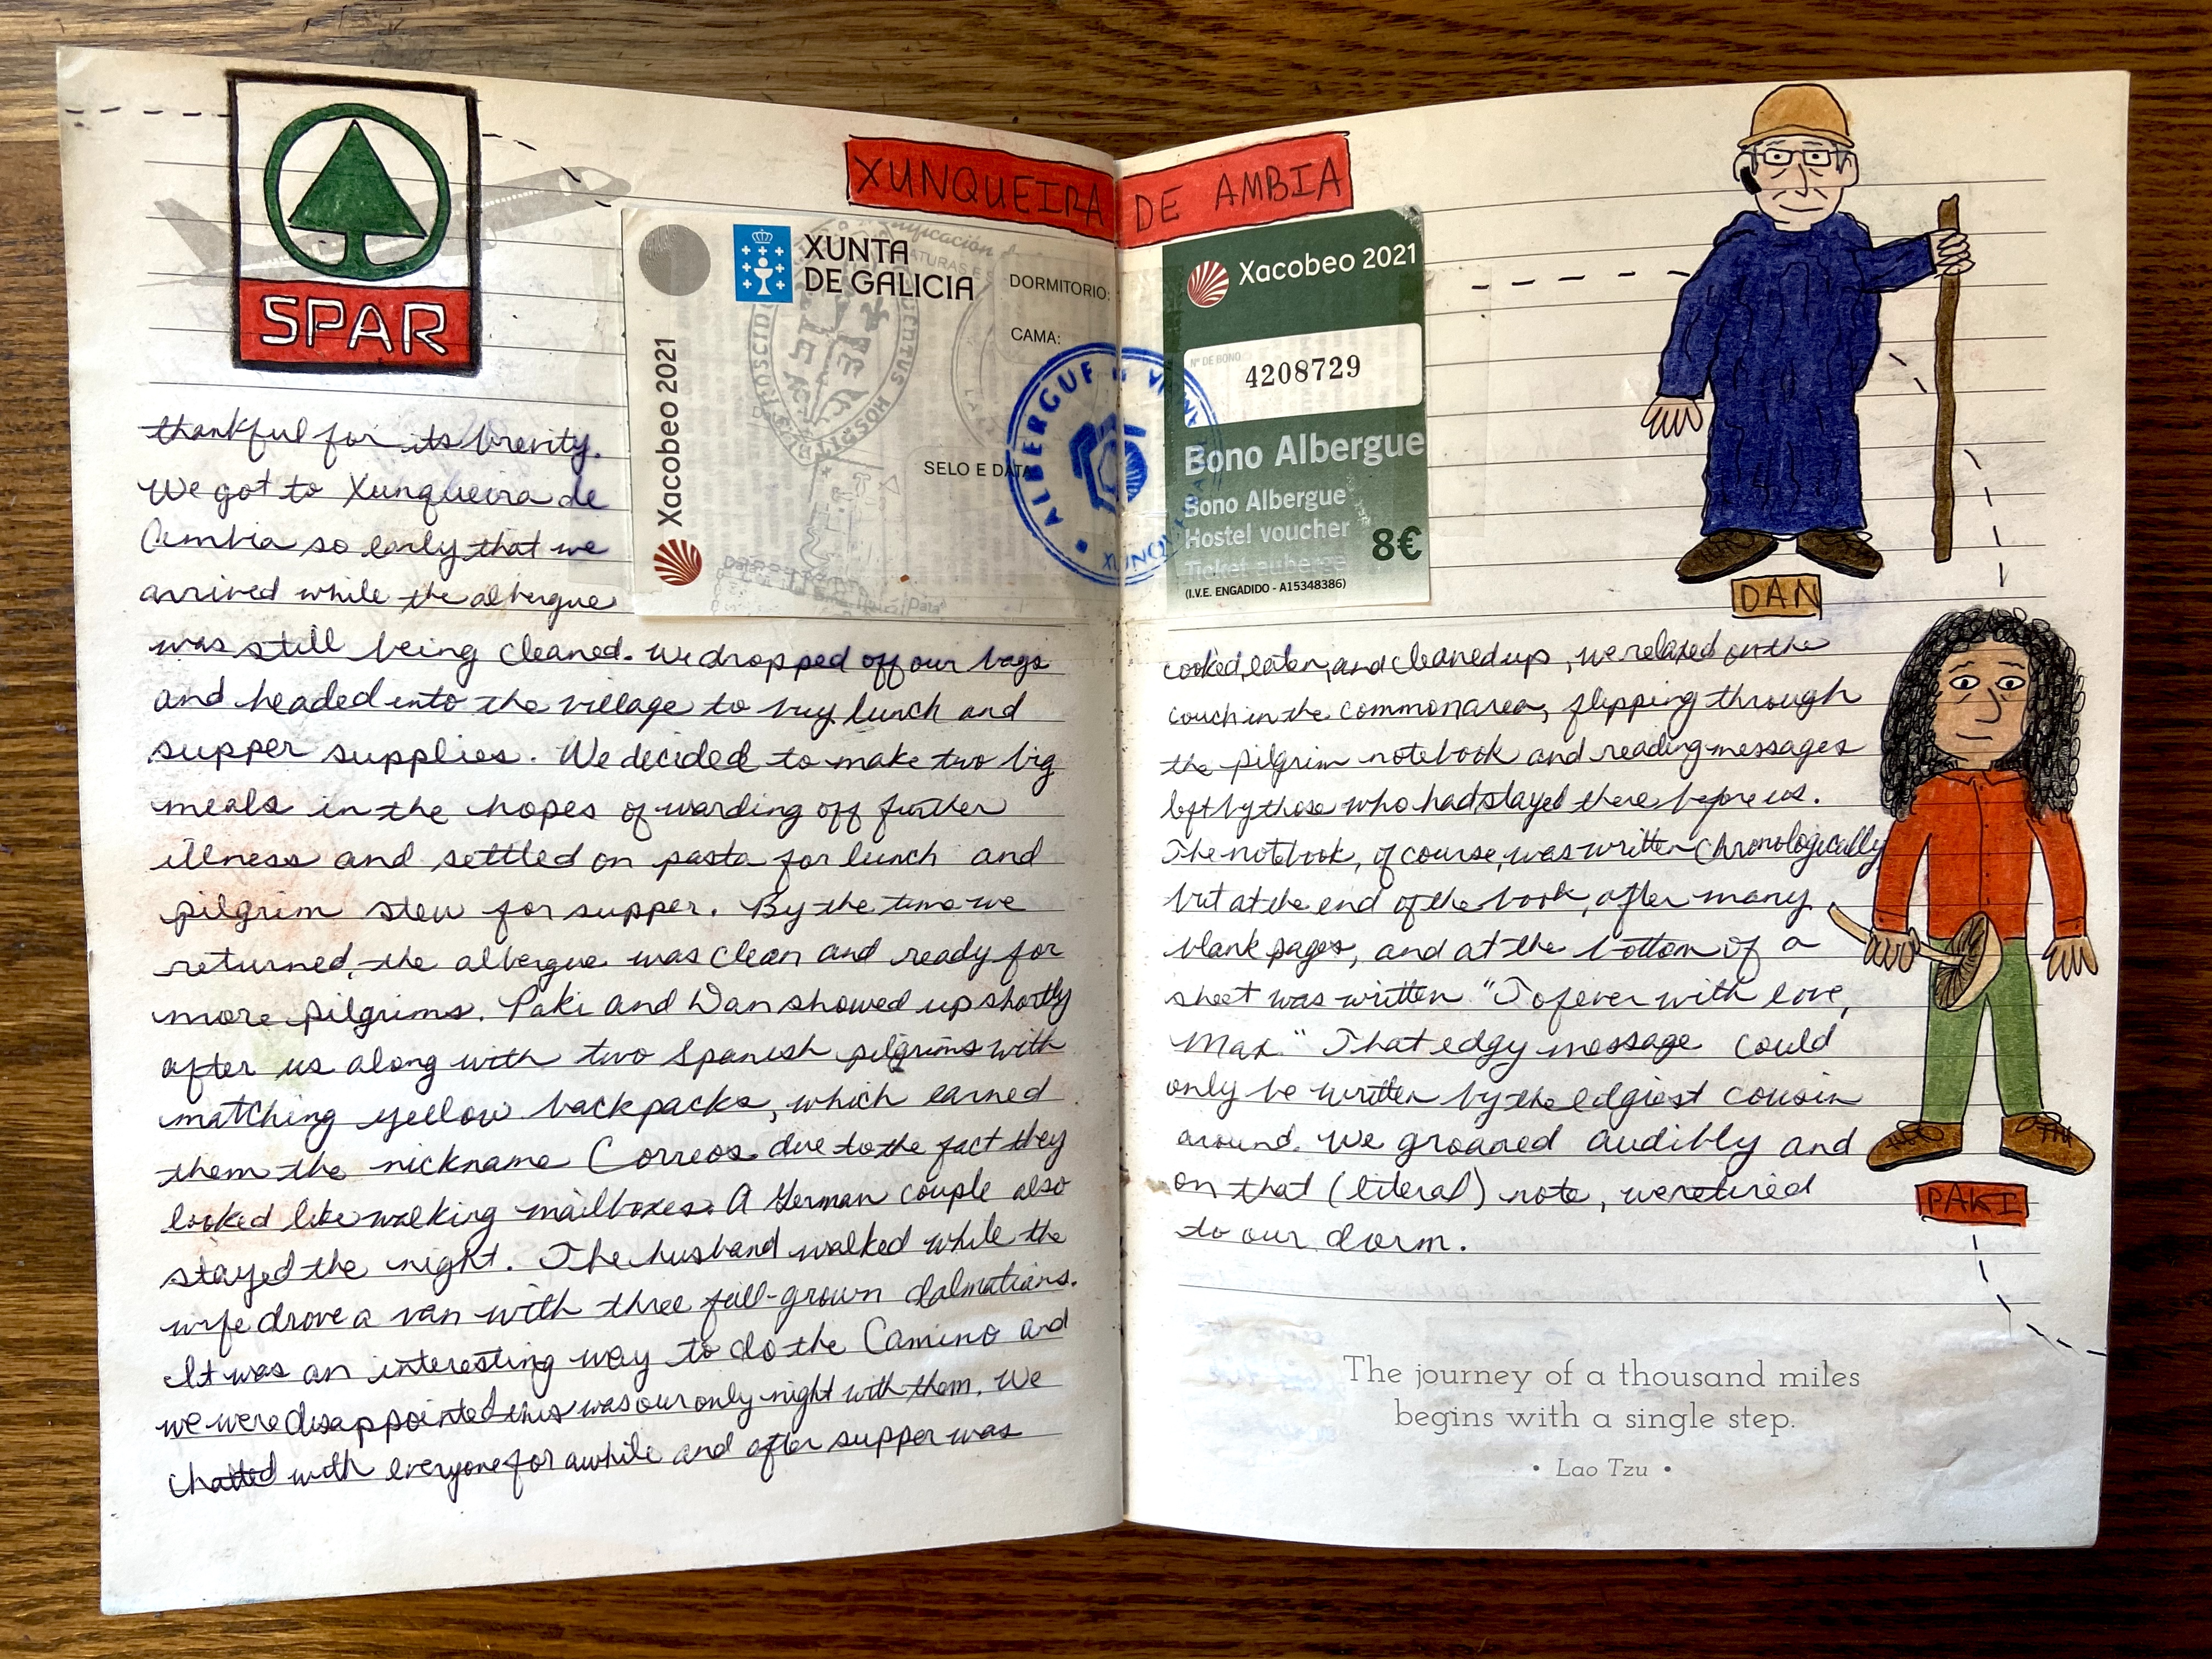 SPAR
XUNQUEIRA DE AMBIA
XUNTA
DE GALICIA
DORMITORIO:
CAMA:
SELO E DATA
Xacobeo 2021
ALBERGUE
Xacobeo 2021
Nº DE BONO
4208729
Bono Albergue
Bono Albergue
Hostel voucher
Ticket auberge
8€
(I.V.E. ENGADIDO - A15348386)
DAN
PAKI
thankful for its brevity.
We got to Xunqueira de
Ambia so early that we
arrived while the albergue
was still being cleaned. We dropped off our bags
and headed into the village to buy lunch and
supper supplies. We decided to make two big
meals in the hopes of warding off further
illness and settled on pasta for lunch and
pilgrim stew for supper. By the time we
returned, the albergue was clean and ready for
more pilgrims. Paki and Dan showed up shortly
after us along with two Spanish pilgrims with
matching yellow backpacks, which earned
them the nickname Correos due to the fact they
looked like walking mailboxes. A German couple also
stayed the night. The husband walked while the
wife drove a van with three full-grown dalmatians.
It was an interesting way to do the Camino and
we were disappointed this was our only night with them. We
chatted with everyone for awhile and after supper was
cooked, eaten, and cleaned up, we relaxed on the
couch in the common area, flipping through
the pilgrim notebook and reading messages
left by those who had stayed there before us.
The notebook, of course, was written chronologically
but at the end of the book, after many
blank pages, and at the bottom of a
sheet was written "Jofever with love,
Max." That edgy message could
only be written by the edgiest cousin
around. We groaned audibly and
on that (literal) note, we retired
to our dorm.
The journey of a thousand miles
begins with a single step.
• Lao Tzu •